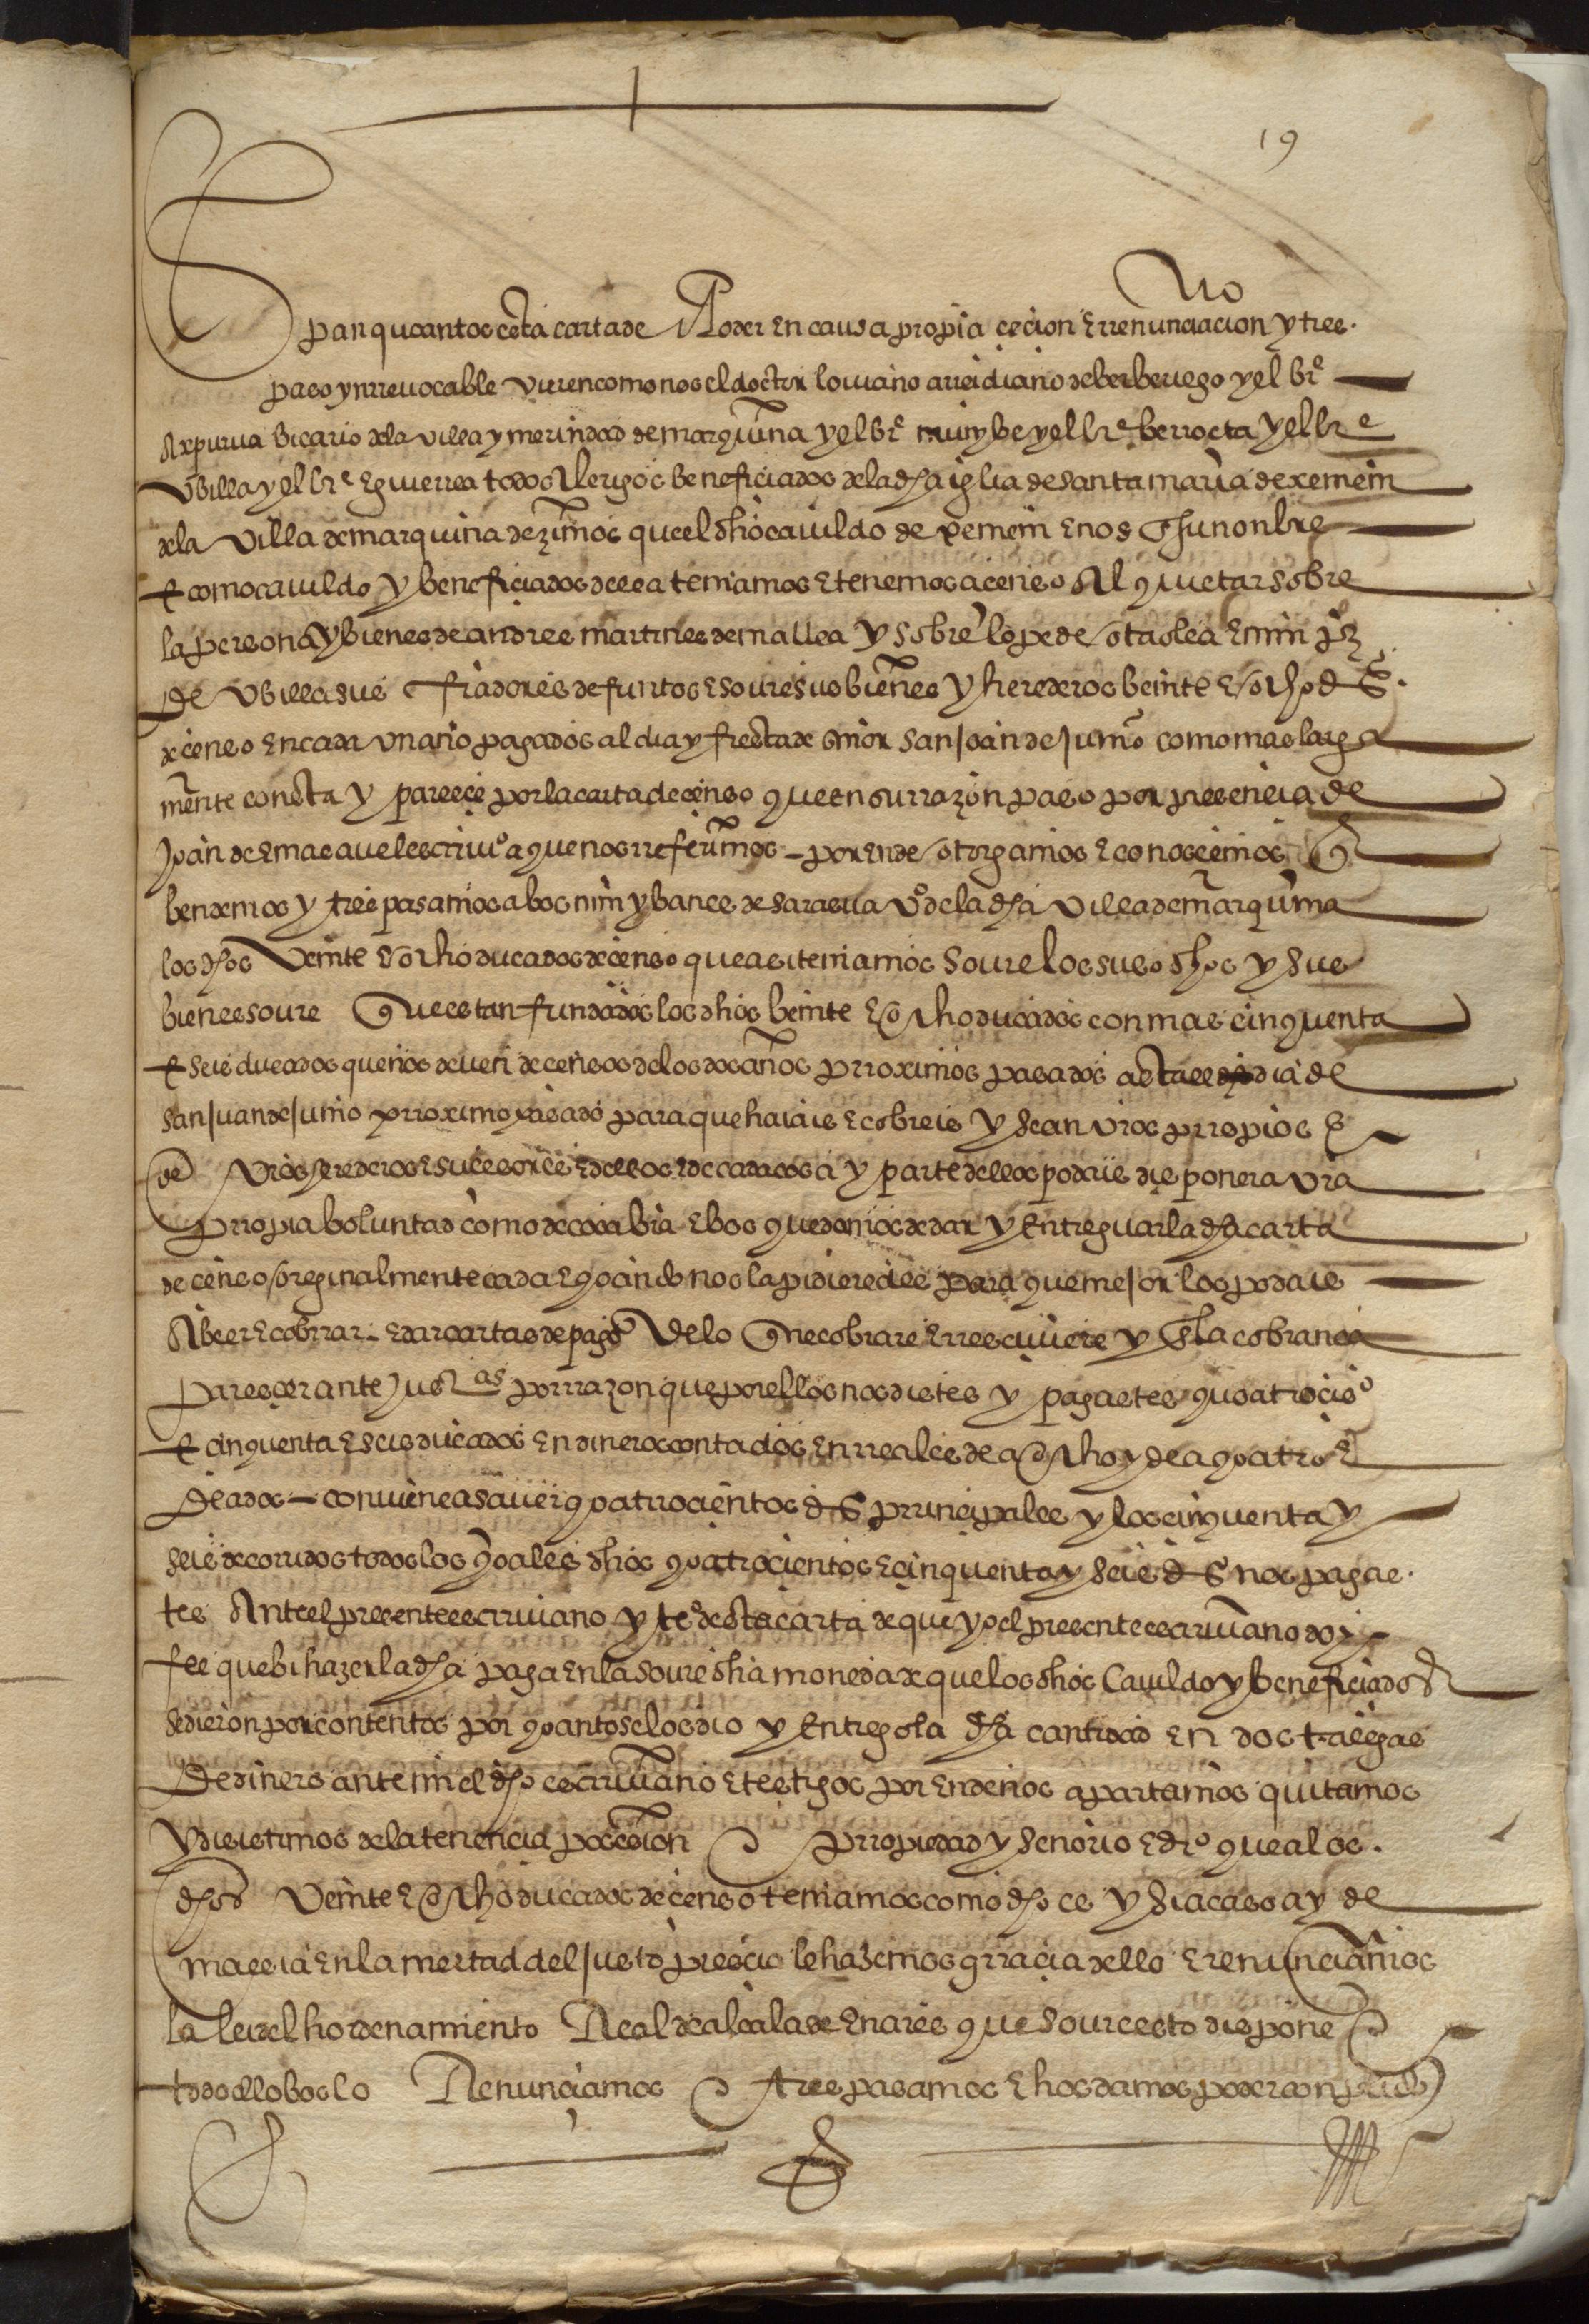 19
No
Sepan quoantos esta carta de Poder en causa propia cecion E rrenunciacion y tres.
paso ynrrevocable vieren como nos el doctor loviano arcidiano de berberiego y el br.e
Axpurua bicario de la villa y merindad de marquina y el br.e muniybe y el br.e berroeta y el br.e
Ubilla y el br.e Eguierrea todos clerigos beneficiados de la dha iglia de santa maria de xemein
de la villa de marquina dezimos que el dho cavildo de xemein E nos En su nonbre
E como cavildo y beneficiados de ella teniamos E tenemos a censo Al quietar sobre
la persona y bienes de andres martines de mallea y sobre lope de otaolea E min prz
de Ubilla sus fiadores defuntos E sovre sus bienes y herederos beinte E ocho ds.
de censo En cada un año pagados al dia y fiesta de señor san joan de junio como mas larga
mente consta y parece por la carta de censo que en su rrazon paso por presencia de
Joan de Emasavel escrivo a que nos rreferimos - por Ende otorgamos E conoscemos q
bendemos y trespasamos a bos min ybanes de sarasua v.o de la dha villa de marquina
los dhos Veinte E ocho ducados de censo que asi teniamos sovre los suso dhos y sus
bienes sovre que estan fundados los dhos beinte E ocho ducados con mas cinquenta
E seis ducados que nos deven de censos de los dos años prroximos pasados asta el dia de
san juan de junio prroximo pasado para que haiais E cobreis y sean vros prropios E
de vros herederos E sucesores E dellos E de cada cosa y parte dellos podais disponer a vra
prropia boluntad como de cosa bra E bos quedamos de dar y Entreguar la dha carta
de censo oreginalmente cada E quoando nos la pidieredes para que mejor los podais
Aber E cobrrar - E dar cartas de pago de lo que cobrare E rresciviere y En la cobranca
parescer ante Justias por rrazon que por ellos nos distes y pagastes quoatrocis.o
E cinquenta E seis ducados En dineros contados En rreales de a ocho y de a quoatro E
de a dos - conviene a saver quoatrocientos ds prrincipales y los cinquenta y
seis de coridos todos los quoales dhos quoatrocientos E cinquenta y seis ds nos pagas.
tes Ante el presente escrivano y t.os desta carta de que yo el presente escrivano doy
fee que bi hazer la dha paga En la sovre dha moneda de que los dhos Cavildo y beneficiados
se dieron por contentos por quoanto se los dio y Entrego la dha cantidad En dos talegas
de dinero ante mi el dho escrivano E testigos por Ende nos apartamos quitamos
y desistimos de la tenencia posesion E prropiedad y señorio E dro que a los.
dhos Veinte E ocho ducados de censo teniamos como dho es y si acaso ay de
masia En la meitad del justo prescio le hazemos grracia dello E renunciamos
la lei del hordenamiento Real de alcala de Enares que sovre esto dispone E
todo ello bos lo Renunciamos E trespasamos E hos damos poder conplido